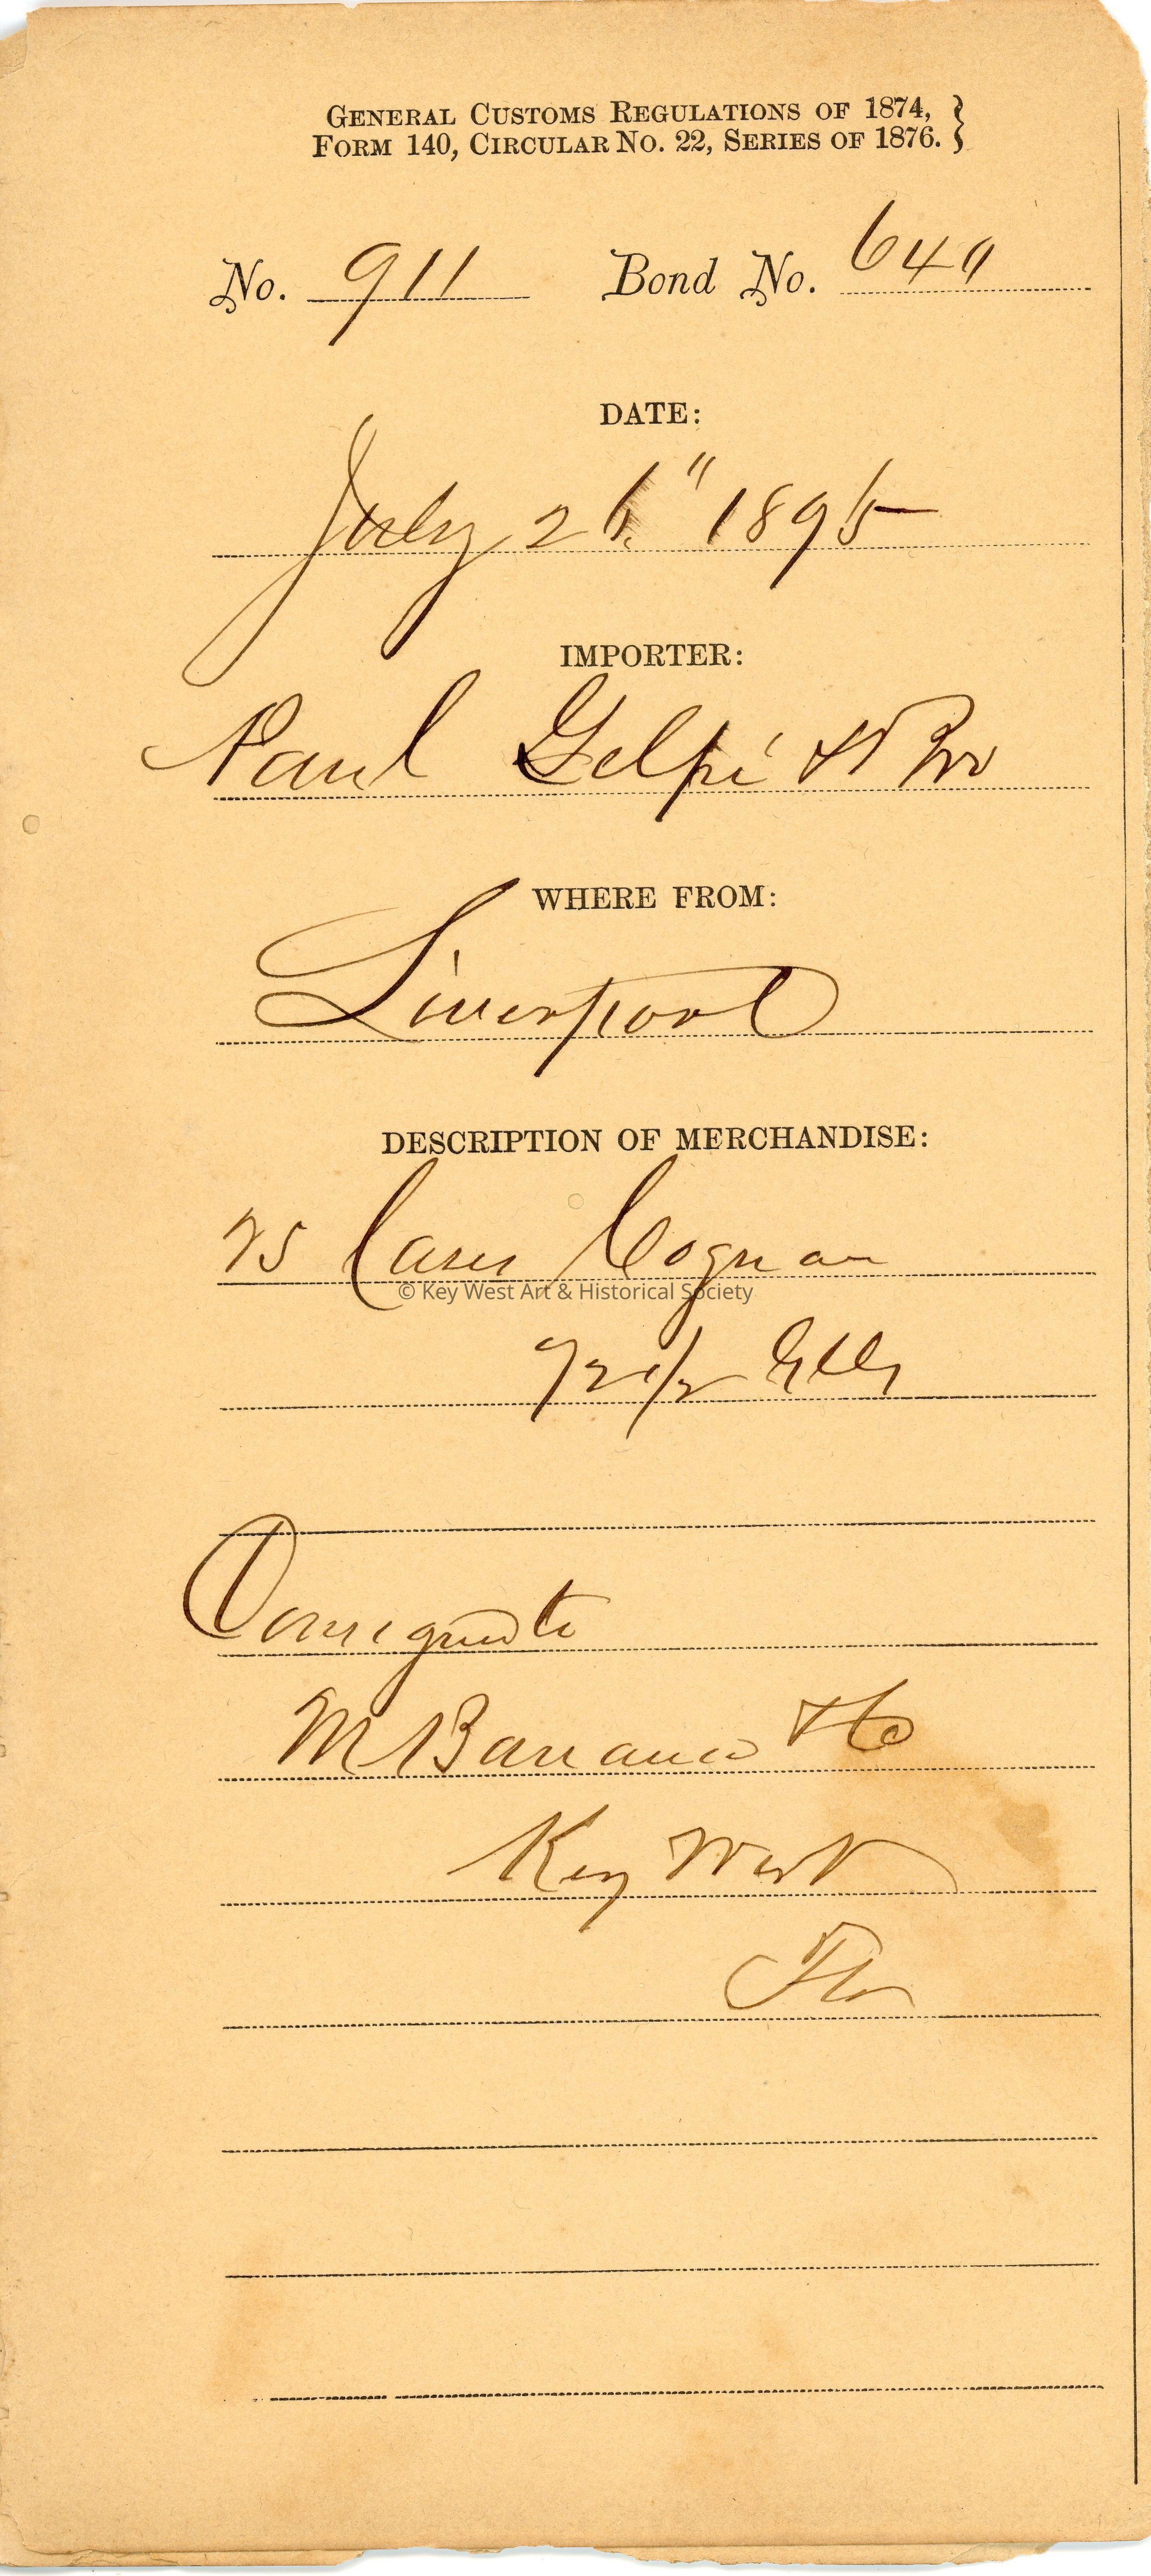 GENERAL CUSTOMS REGULATIONS OF 1874, }
FORM 140, CIRCULAR NO. 22, SERIES OF 1876. }
No. 911 Bond No.
DATE:
July 26" 1895
IMPORTER:
Paul Gelpi & Bro
WHERE FROM:
Liverpool
DESCRIPTION OF MERCHANDISE:
25 Cases Cognac
© Key West Art & Historical Society
72 1/2 Glls
M Barranco & Co
Key West
Fla